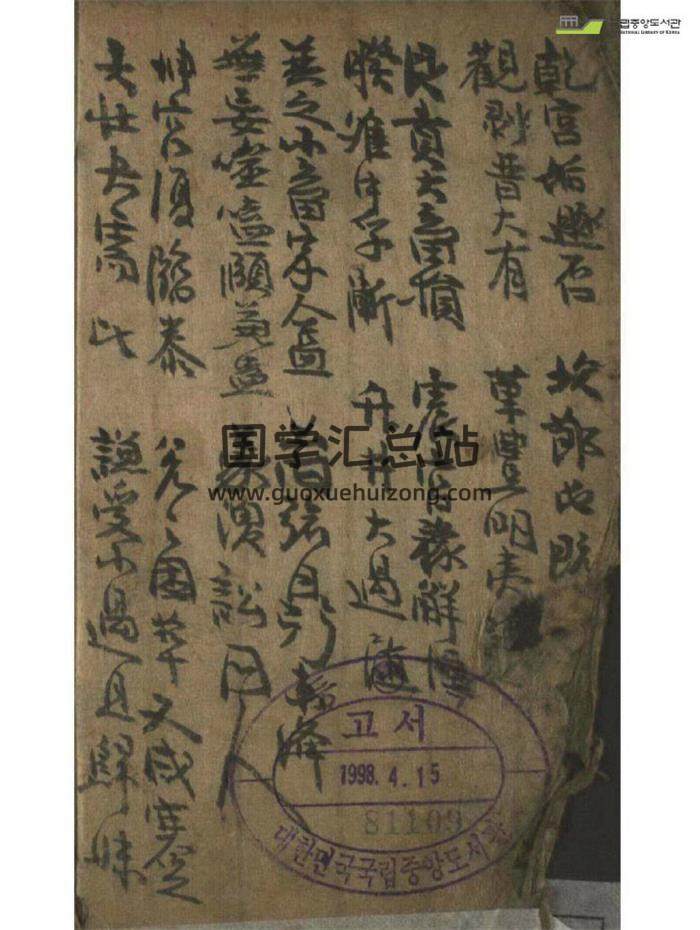 국립중앙도서관
NATIONAL LIBRARY OF KOREA
乾宮姤遯否 坎節屯既
觀剝晋大有 革豊明夷
艮賁大畜損 震 豫解恒
睽 中孚漸 升井大過隨
巽之小畜家人益 且
無妄噬嗑頤 蠱 渙訟同人
坤宮復臨泰 兌之困萃又咸蹇
大壯夬需比 謙受小過且歸妹
国学汇总站
www.guoxuehuizong.com
고서
1998.4.15
81109
대한민국국립중앙도서관